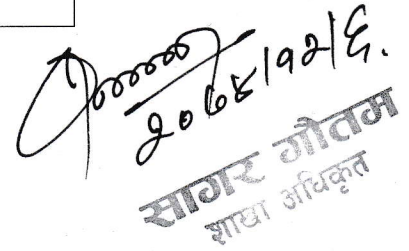 २०७४।१२।६.
सागर गौतम
शाखा अधिकृत